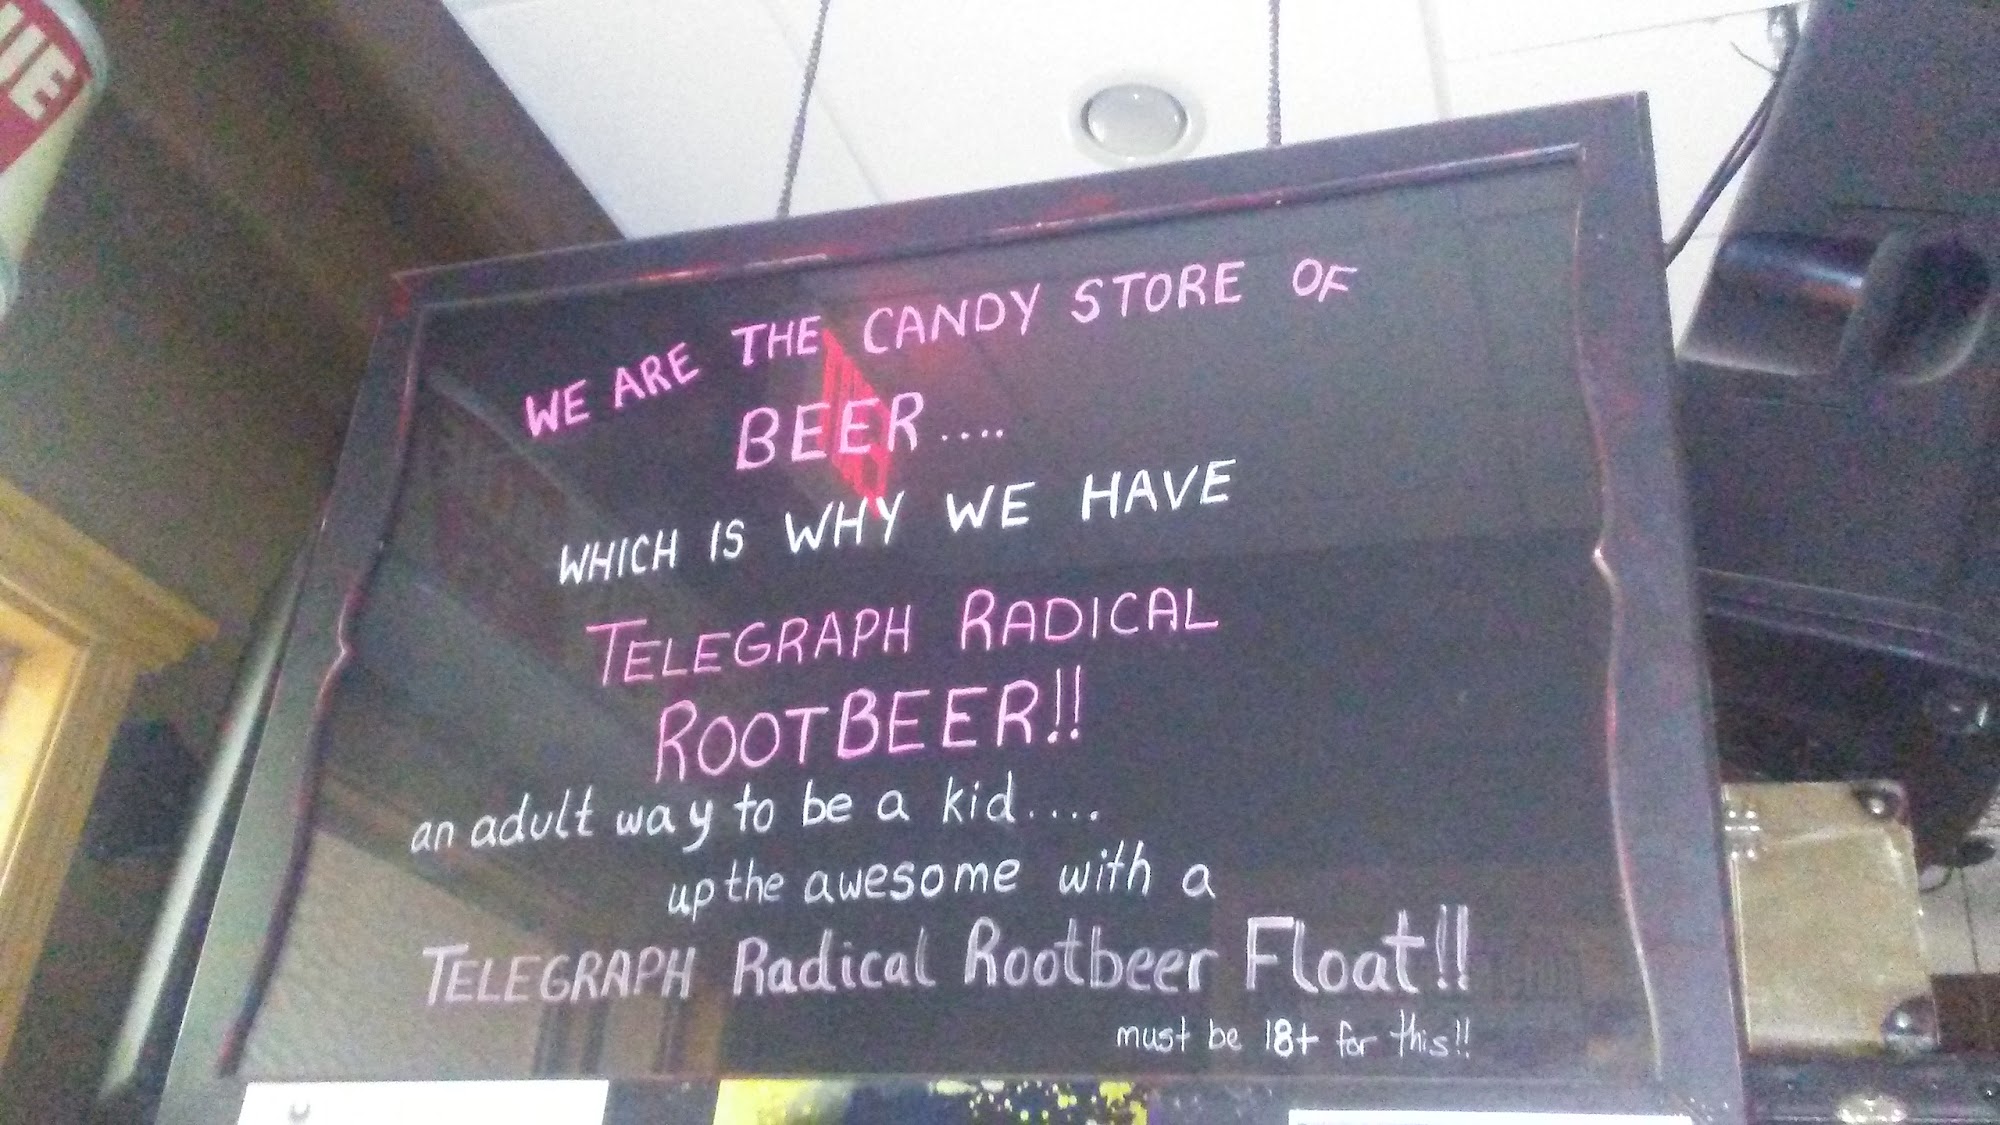 WE ARE THE CANDY STORE OF
BEER....
WHICH IS WHY WE HAVE
TELEGRAPH RADICAL
ROOTBEER!!
an adult way to be a kid....
up the awesome with a
TELEGRAPH Radical Rootbeer Float!!
must be 18+ for this!!